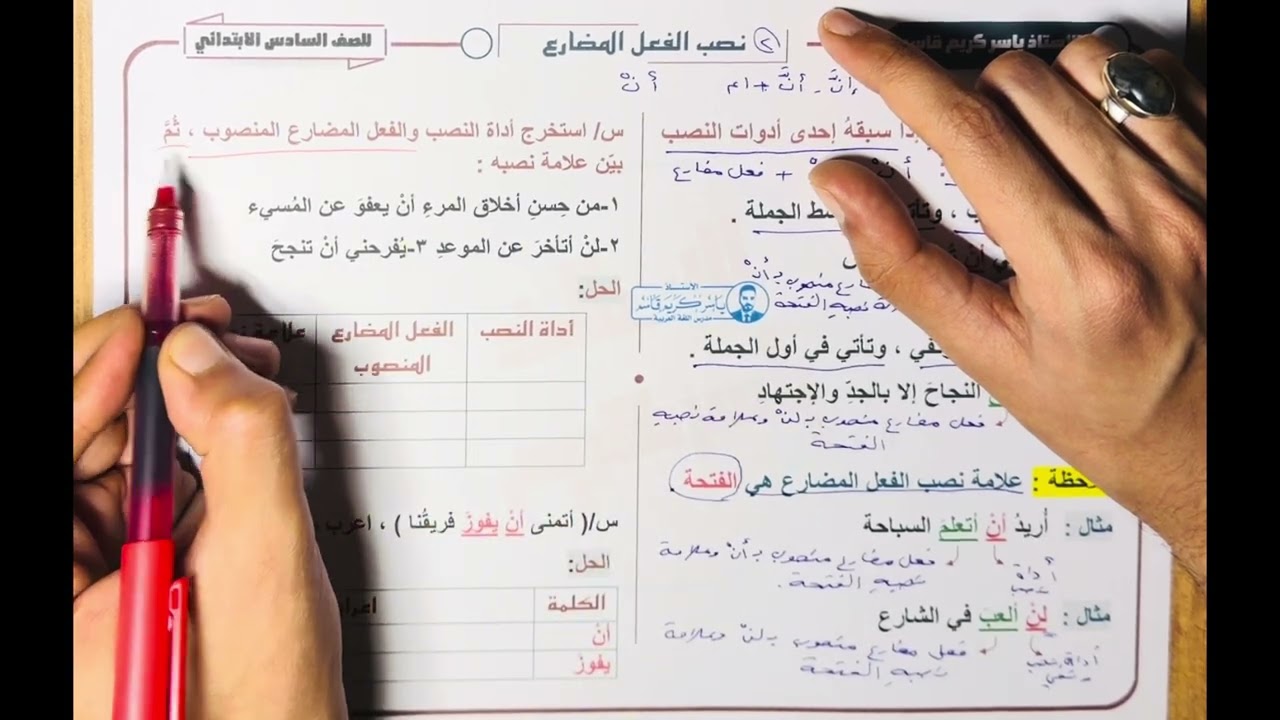 الأستاذ ياسر كريم قاسم
نصب الفعل المضارع
للصف السادس الابتدائي
إنَّ - أنَّ + اسم أنْ
إذا سبقهُ إحدى أدوات النصب
أنْ + فعل مضارع
، وتأتي وسط الجملة .
منصوب بـ أنْ
نصبهِ الفتحة
، وتأتي في أول الجملة .
النجاحَ إلا بالجدّ والإجتهادِ
فعل مضارع منصوب بـ لنْ وعلامة نصبهِ
الفتحة
ملاحظة : علامة نصب الفعل المضارع هي الفتحة .
مثال : أُريدُ أنْ أتعلمَ السباحة
أداة نصب
فعل مضارع منصوب بـ أنْ وعلامة
نصبهِ الفتحة .
مثال : لنْ ألعبَ في الشارع
أداة نصب ونفي
فعل مضارع منصوب بـ لنْ وعلامة
نصبهِ الفتحة
س/ استخرج أداة النصب والفعل المضارع المنصوب ، ثُمَّ
بيَن علامة نصبه :
١-من حِسنِ أخلاق المرءِ أنْ يعفوَ عن المُسيء
٢-لنْ أتأخرَ عن الموعدِ ٣-يُفْرحني أنْ تنجحَ
الحل:
أداة النصب الفعل المضارع علامة
المنصوب
س/( أتمنى أنْ يفوزَ فريقُنا ) ، اعرب
الحل:
الكلمة
أنْ
يفوزَ
الأستاذ
ياسر كريم قاسم
مدرس اللغة العربية